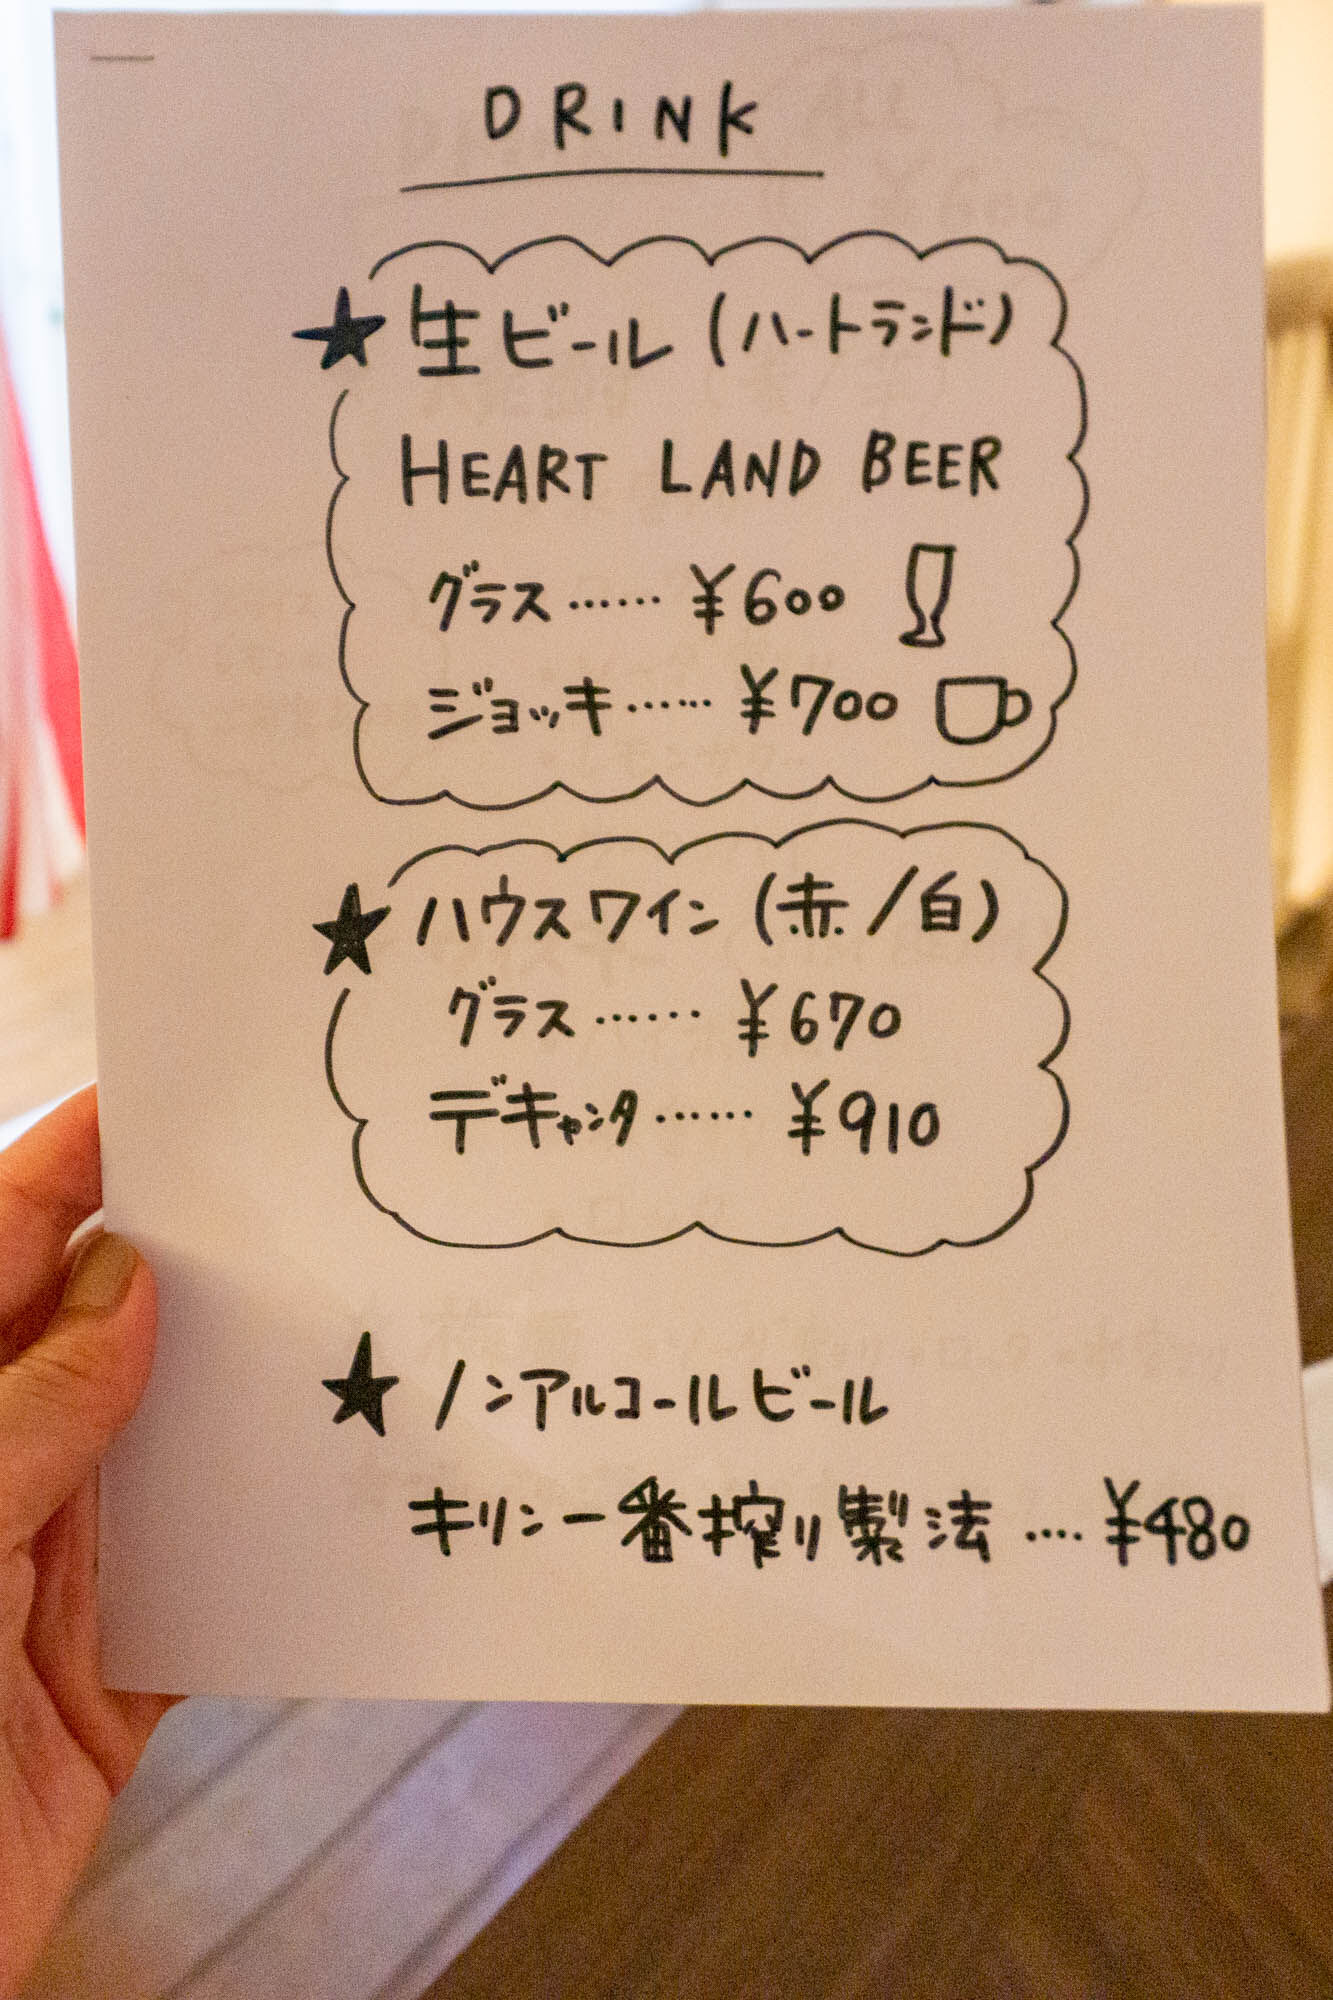 DRINK
★ 生ビール (ハートランド)
HEART LAND BEER
グラス …… ¥600
ジョッキ …… ¥700
★ ハウスワイン (赤/白)
グラス …… ¥670
デキャンタ …… ¥910
★ ノンアルコールビール
キリン一番搾り製法 …. ¥480